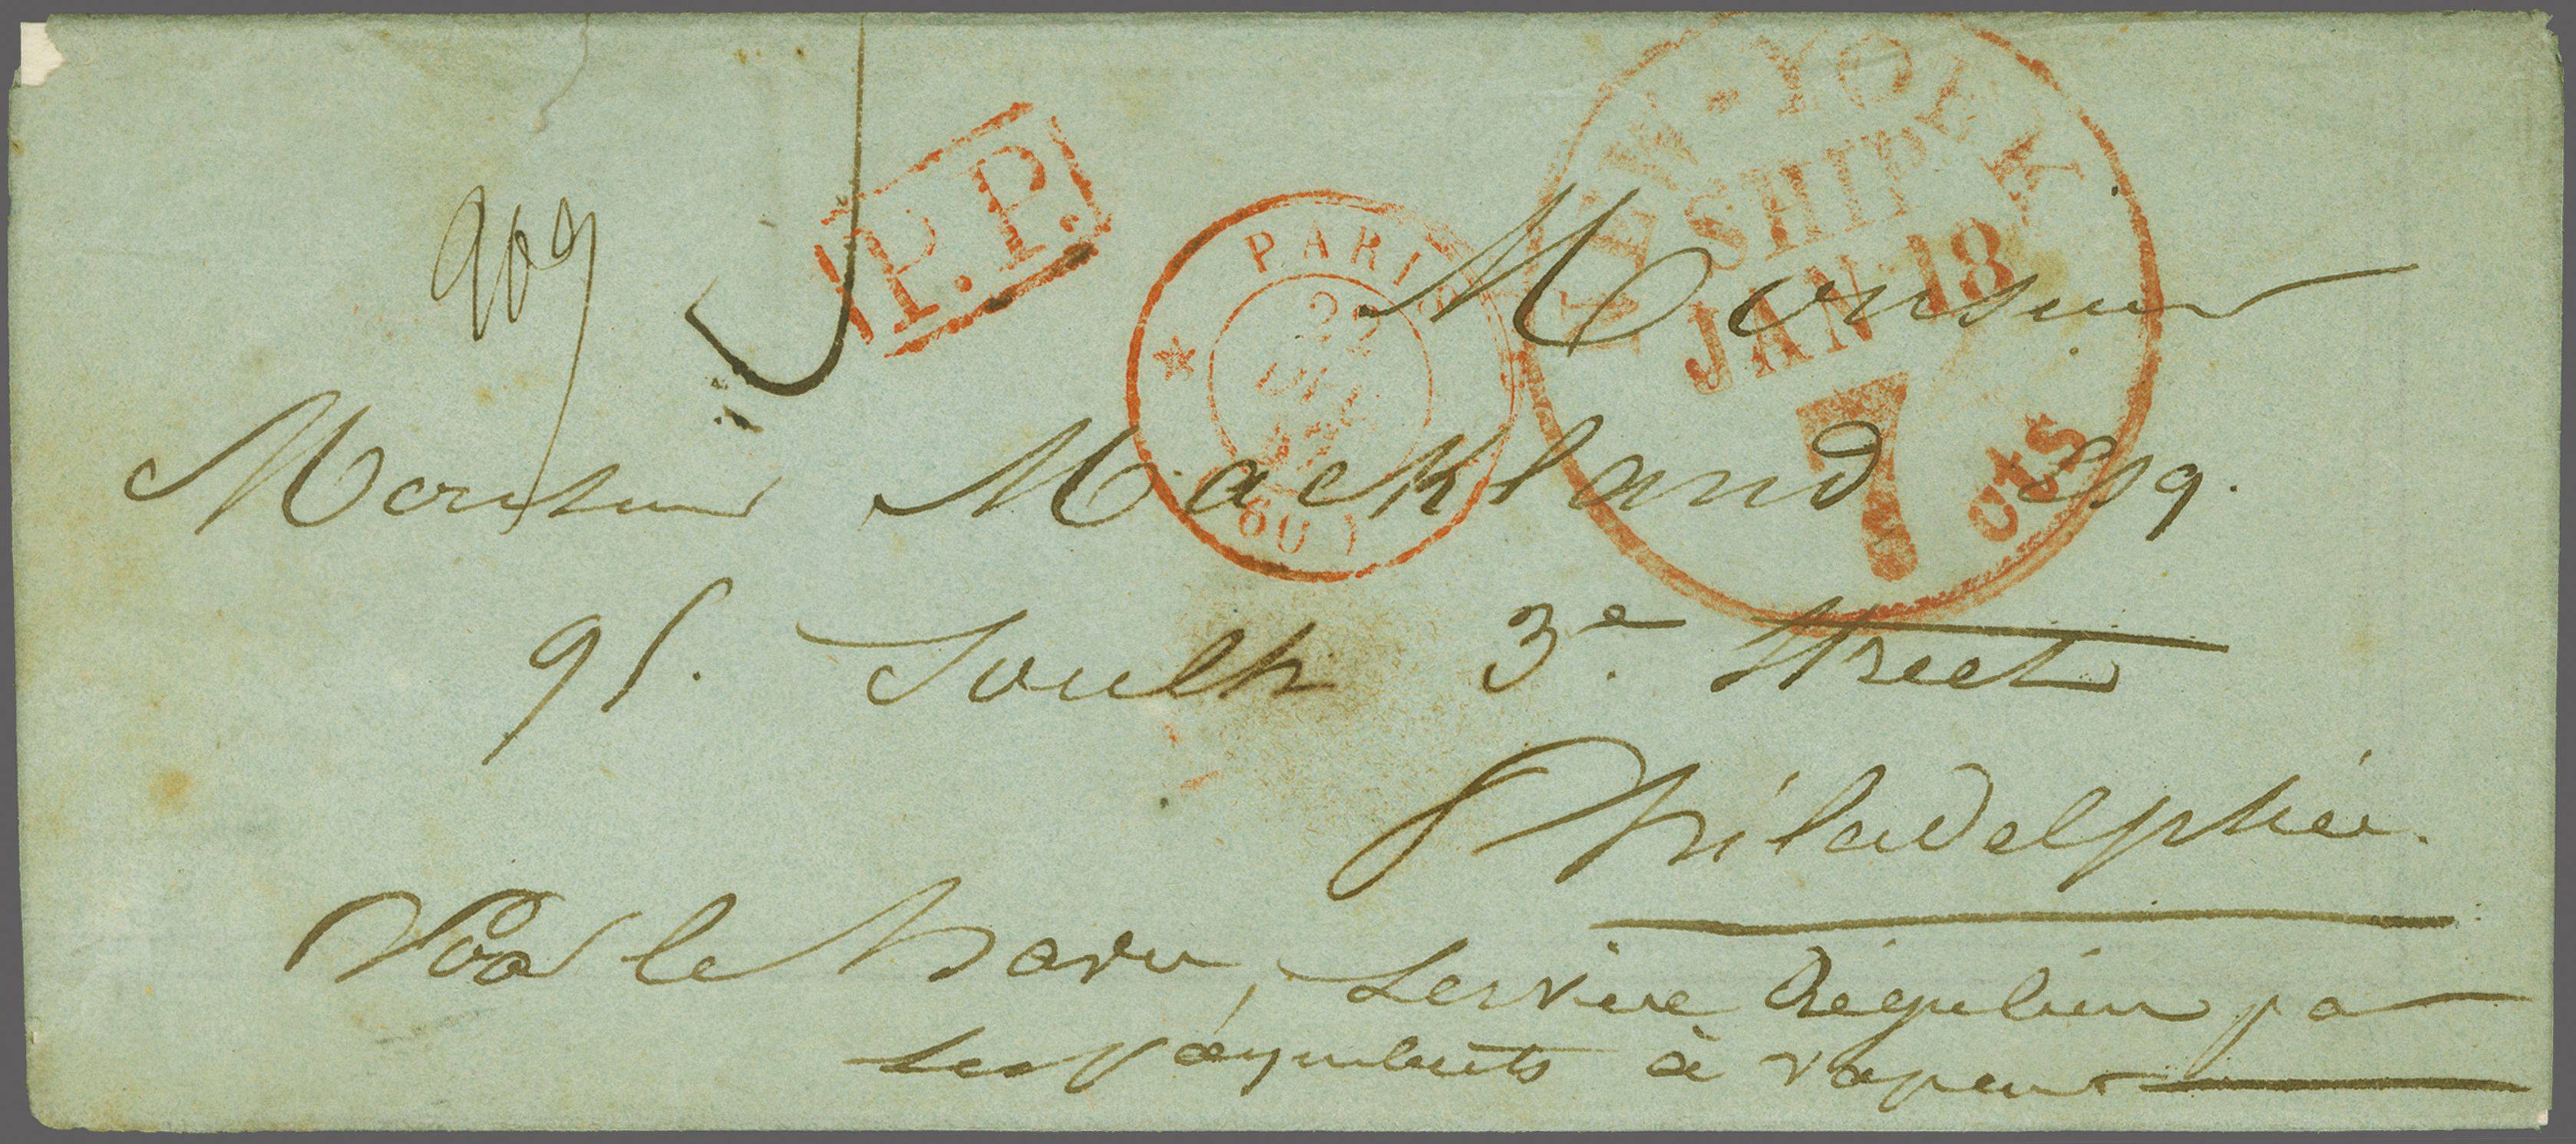 909
P.P.
PARIS
22
(60)
NEW-YORK
SHIP
JAN 18
7
cts
Monsieur
Monsieur Mackland Esq.
95. South 3e. Street
Philadelphie.
Par le Havre, Service Régulier par
les Paquebots à vapeur